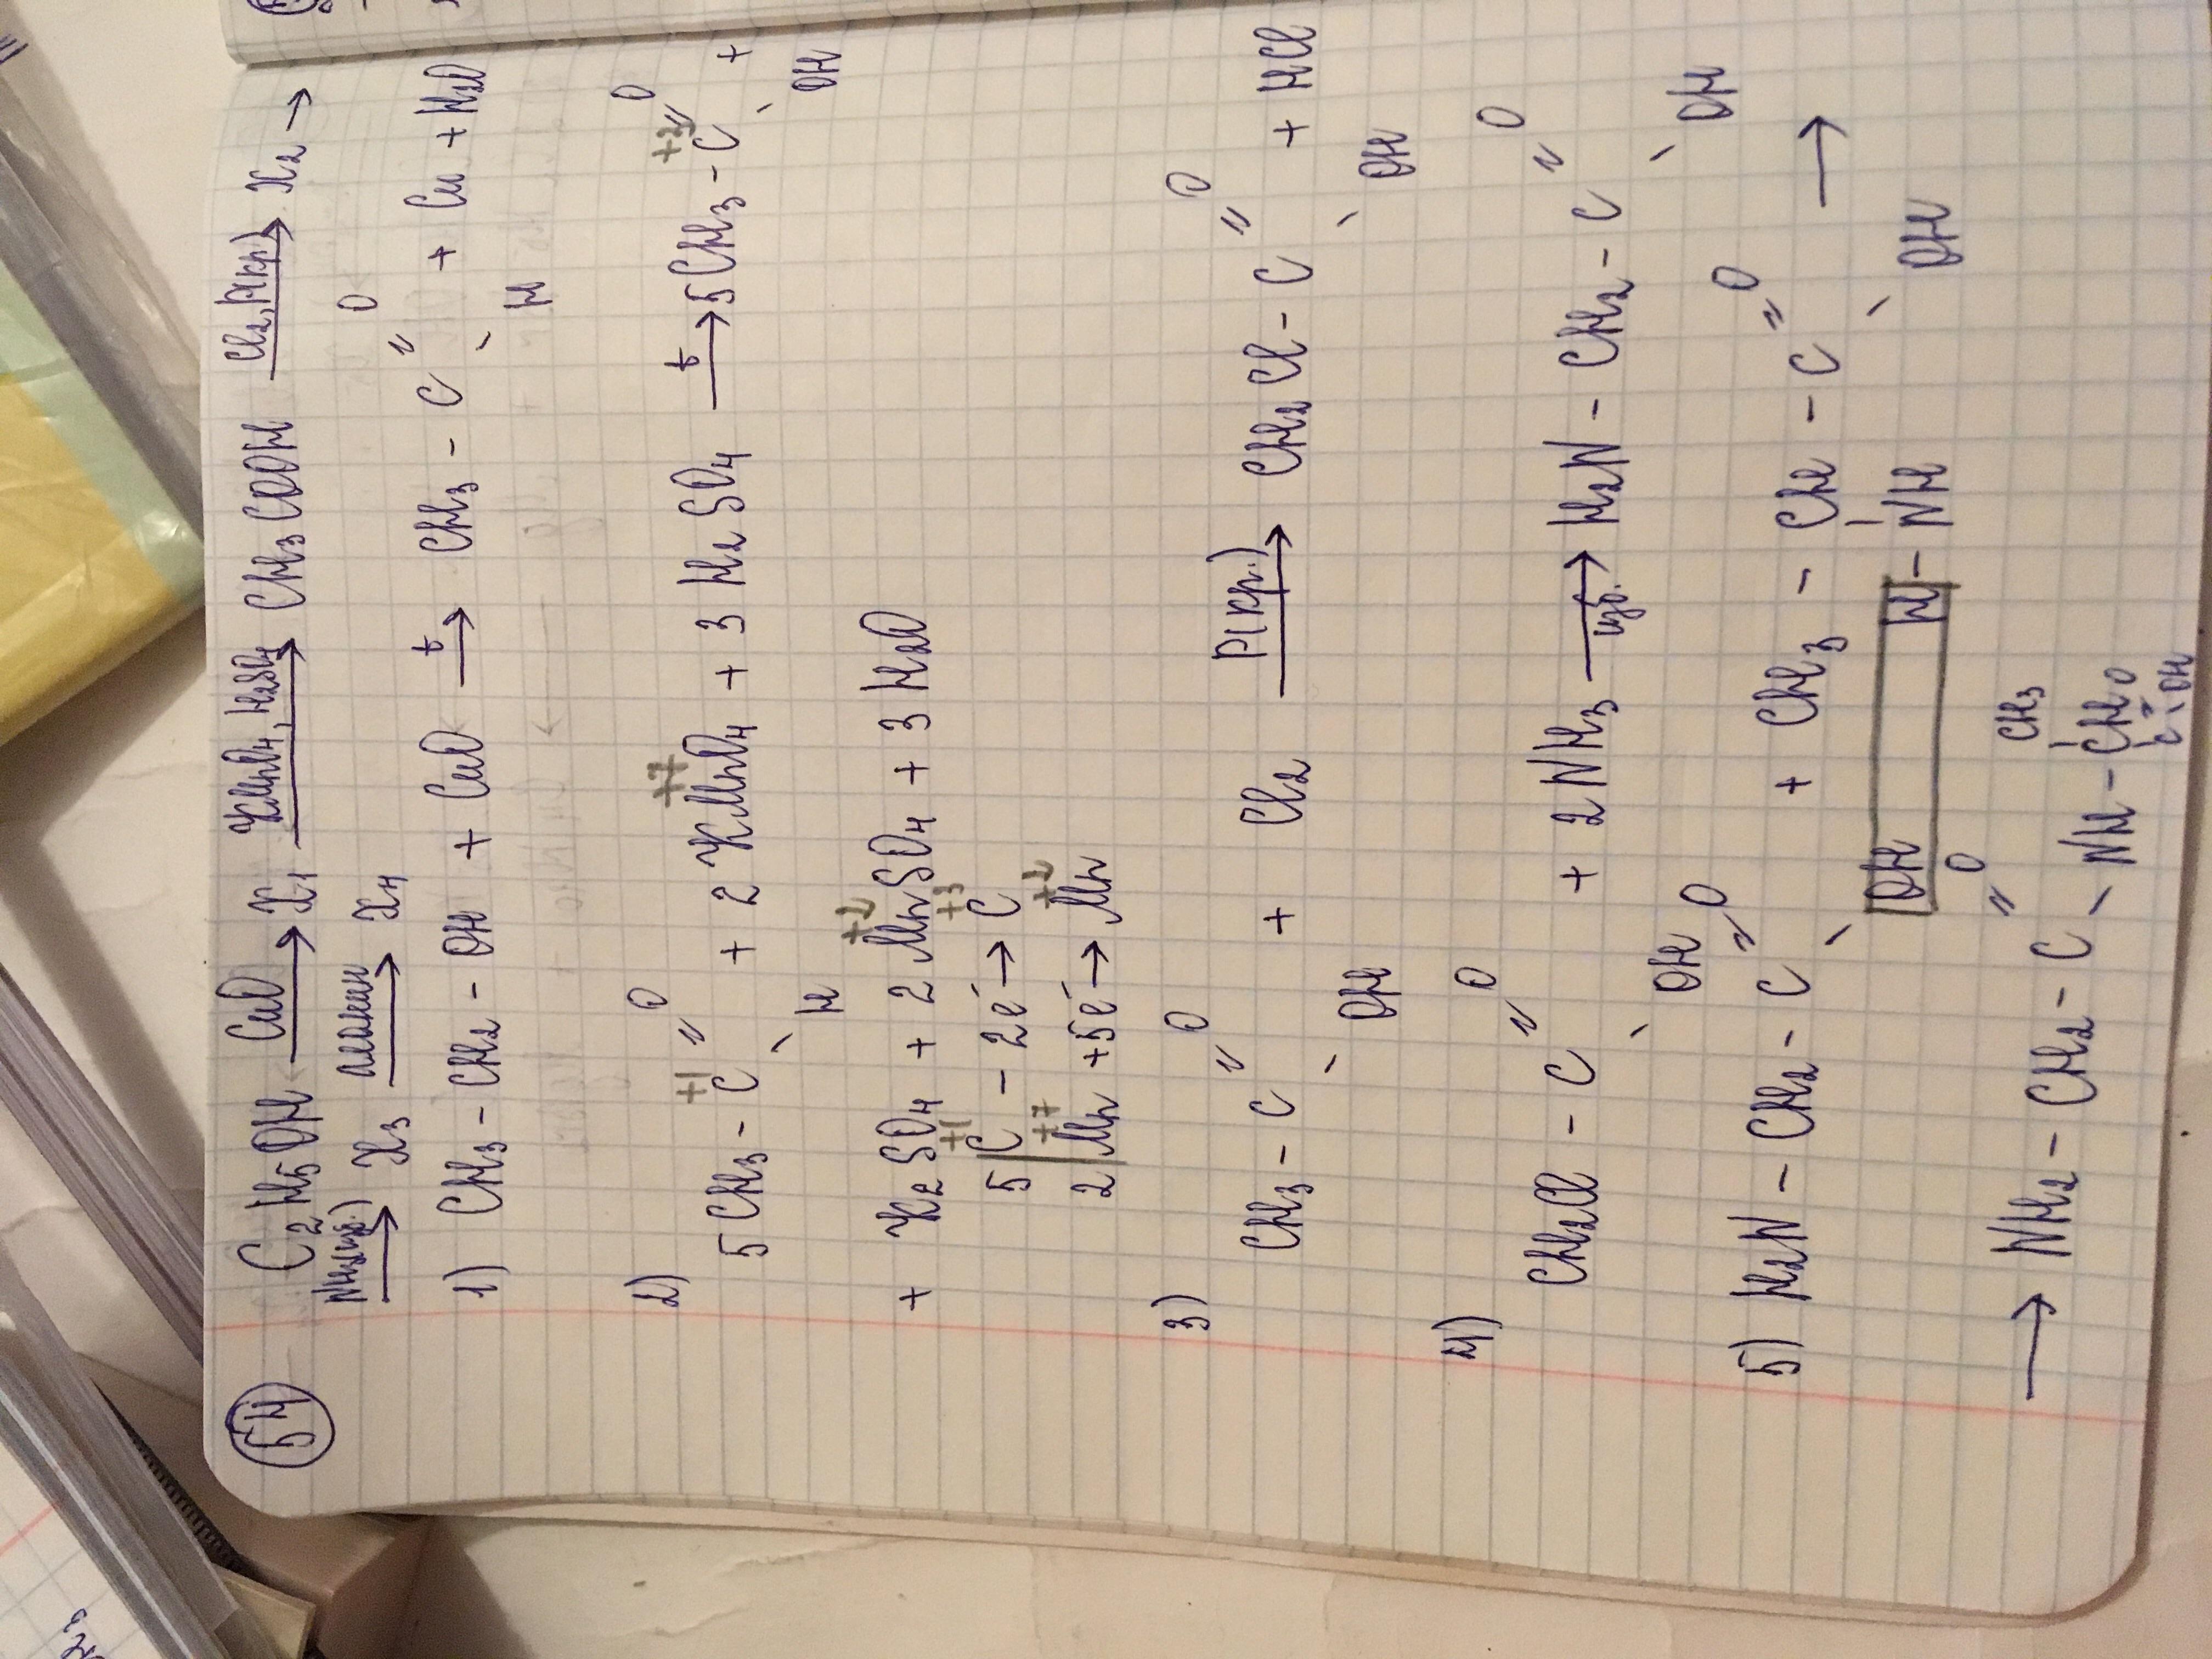 54
C₂H₅OH —CuO→ X₁ —KMnO₄, H₂SO₄→ CH₃COOH —Cl₂, P(кр.)→ X₂ →
NH₃(изб.)→ X₃ —аланин→ X₄
1) CH₃ – CH₂ – OH + CuO —t→ CH₃ – C (=O) – H + Cu + H₂O
2)
5CH₃ – C⁺¹ (=O) – H + 2KMn⁺⁷O₄ + 3H₂SO₄ —t→ 5CH₃ – C⁺³ (=O) – OH +
+ K₂SO₄ + 2Mn⁺²SO₄ + 3H₂O
5 | C⁺¹ – 2e⁻ → C⁺³
2 | Mn⁺⁷ + 5e⁻ → Mn⁺²
3)
CH₃ – C (=O) – OH + Cl₂ —P(кр.)→ CH₂Cl – C (=O) – OH + HCl
4)
CH₂Cl – C (=O) – OH + 2NH₃ —изб.→ H₂N – CH₂ – C (=O) – OH
5) H₂N – CH₂ – C (=O) – OH + CH₃ – CH – C (=O) – OH →
H – NH
→ NH₂ – CH₂ – C (=O) – NH – CH (CH₃) – C (=O) – OH